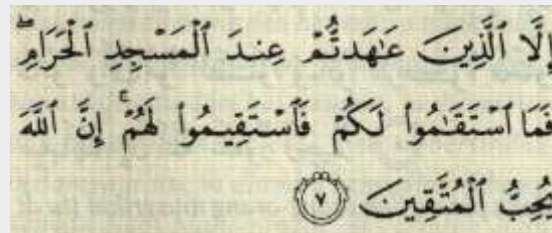 إِلَّا ٱلَّذِينَ عَـٰهَدتُّمْ عِندَ ٱلْمَسْجِدِ ٱلْحَرَامِ ۖ
فَمَا ٱسْتَقَـٰمُوا۟ لَكُمْ فَٱسْتَقِيمُوا۟ لَهُمْ ۚ إِنَّ ٱللَّهَ
يُحِبُّ ٱلْمُتَّقِينَ ٧